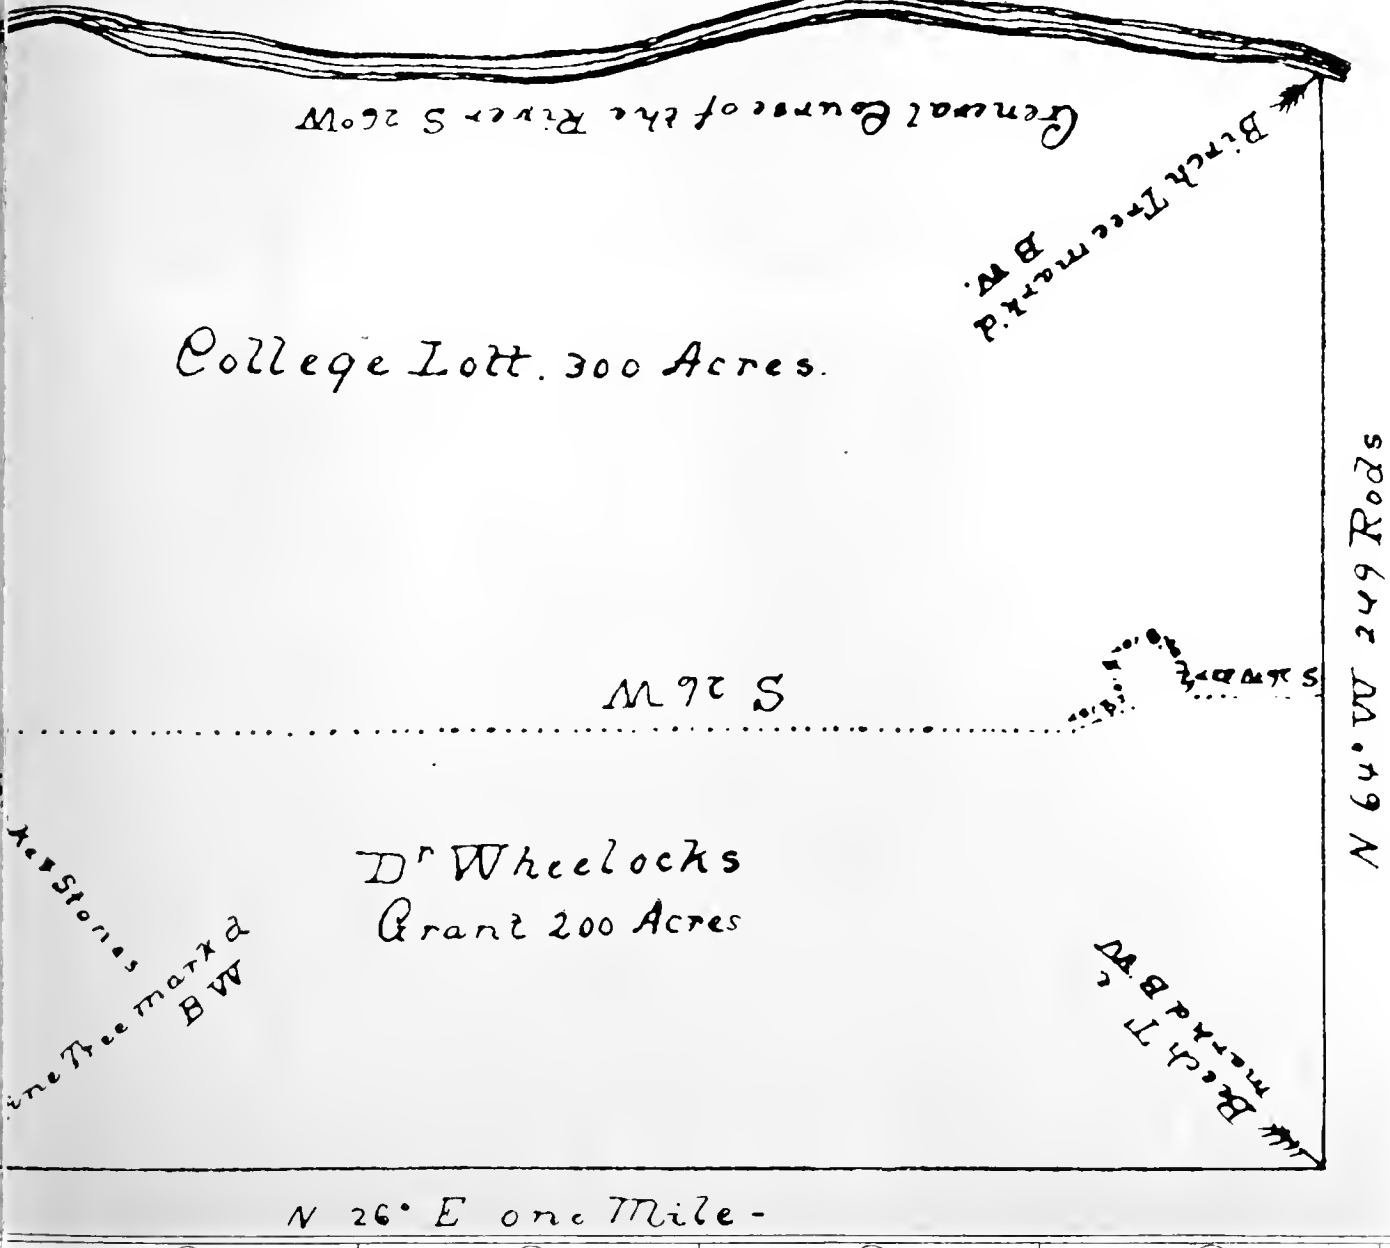 General Course of the River S 26° W
Birch Tree mark'd
B W.
College Lott. 300 Acres.
S 26 W
S 26 W
Dr Wheelocks
Grant 200 Acres
Stones
Tree markd
B W
Beech
markd B W
Rods
N 26° E one Mile -